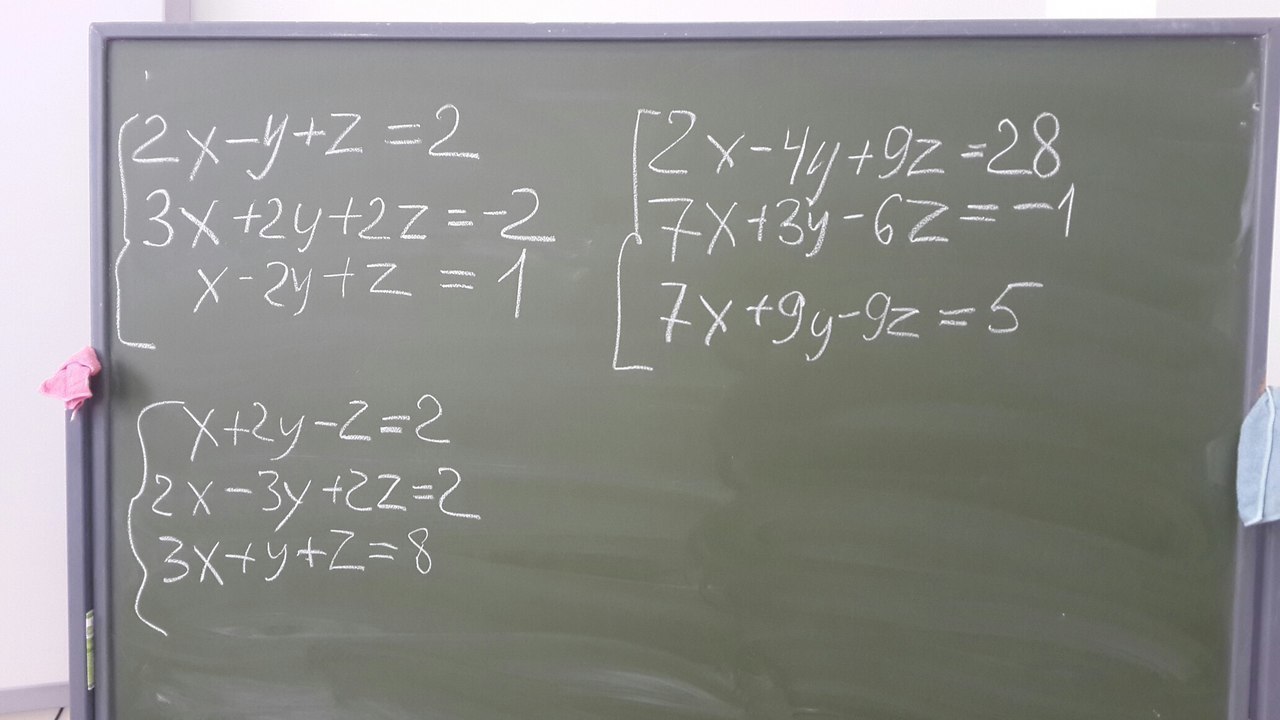 2x-y+z=2
3x+2y+2z=-2
x-2y+z=1
2x-4y+9z=28
7x+3y-6z=-1
7x+9y-9z=5
x+2y-z=2
2x-3y+2z=2
3x+y+z=8